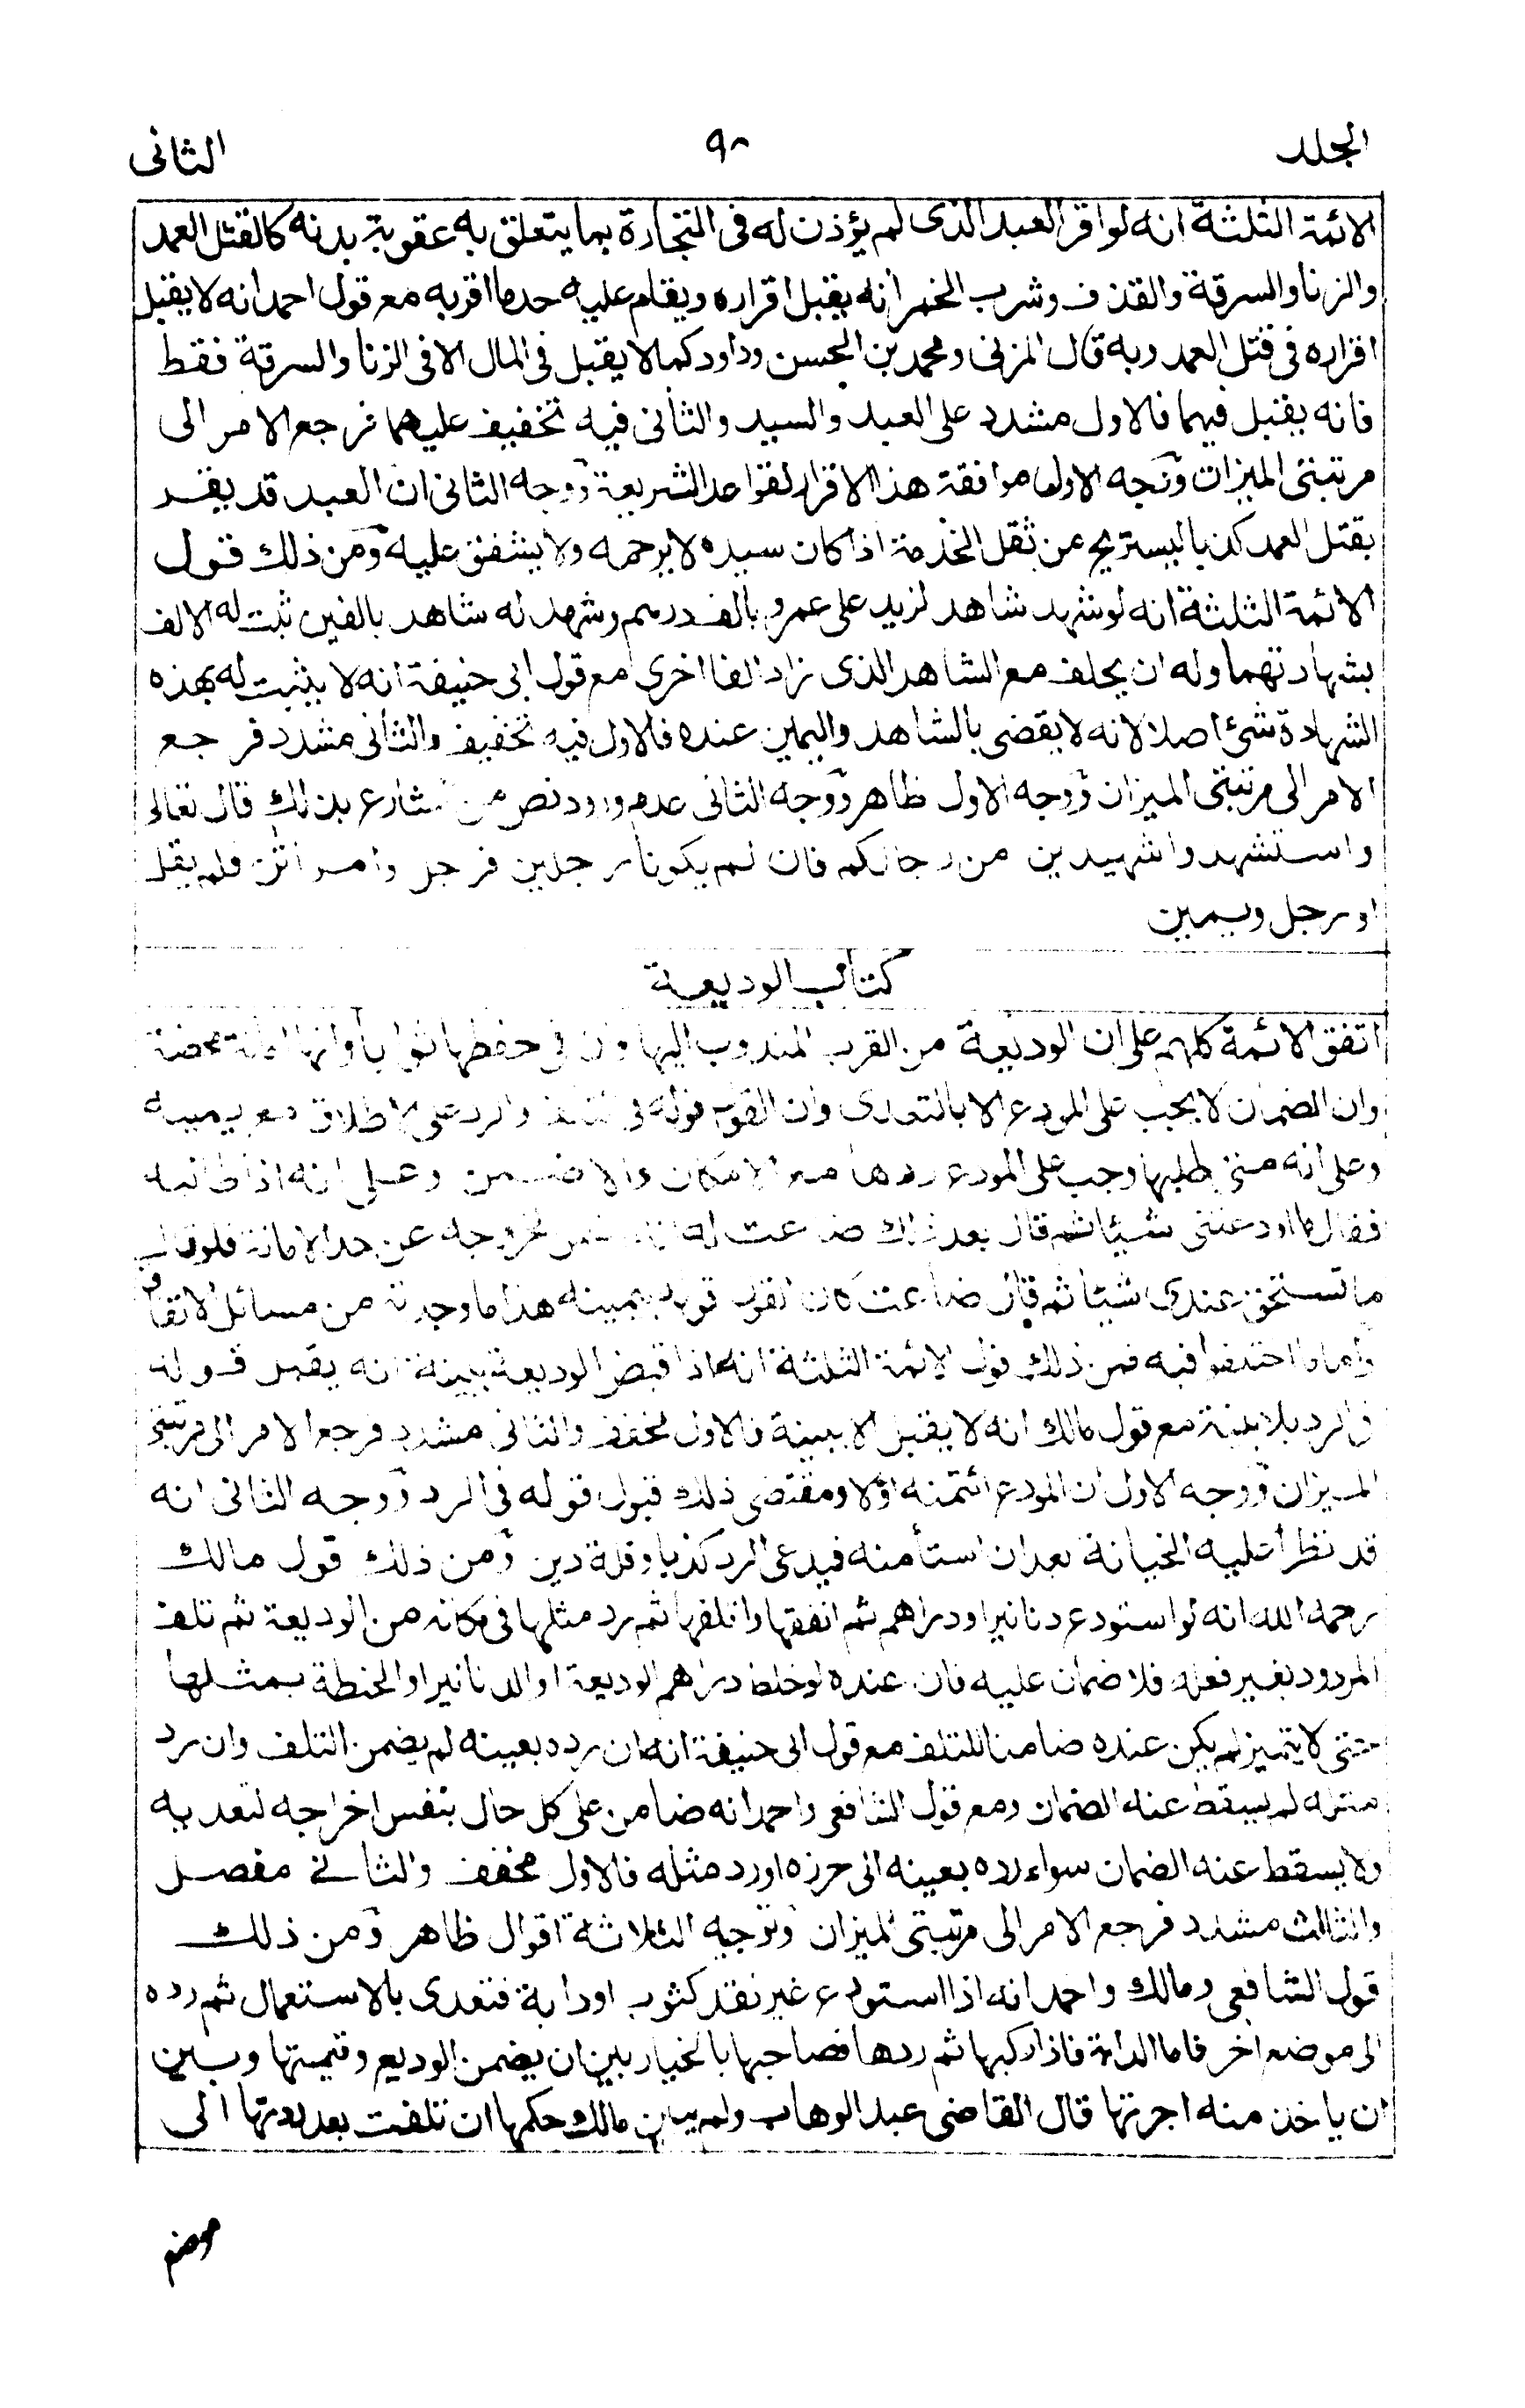 الجلد ٩٨ الثانى
الائمة الثلثة انه لو اقر العبد الذى لم يؤذن له فى التجارة بما يتعلق به عقوبة بدنه كالقتل العمد
والزنا والسرقة والقذف وشرب الخمر انه يقبل اقراره ويقام عليه حد ما اقر به مع قول احمد انه لا يقبل
اقراره فى قتل العمد وبه قال المزنى ومحمد بن الحسن وداود كما لا يقبل فى المال الا فى الزنا والسرقة فقط
فانه يقبل فيهما فالاول مشدد على العبد والسيد والثانى فيه تخفيف عليهما فرجع الامر الى
مرتبتى الميزان ووجه الاول موافقة هذا الاقرار لقواعد الشريعة ووجه الثانى ان العبد قد يقر
بقتل العمد كذبا ليستريح عن ثقل الخدمة اذا كان سيده لا يرحمه ولا يشفق عليه ومن ذلك قول
الائمة الثلثة انه لو شهد شاهد لزيد على عمرو بالف درهم وشهد له شاهد بالفين ثبت له الالف
بشهادتهما وله ان يحلف مع الشاهد الذى زاد الفا اخرى مع قول ابى حنيفة انه لا يثبت له بهذه
الشهادة شئ اصلا لانه لا يقضى بالشاهد واليمين عنده فالاول فيه تخفيف والثانى مشدد فرجع
الامر الى مرتبتى الميزان ووجه الاول ظاهر ووجه الثانى عدم ورود نص من الشارع بذلك قال تعالى
واستشهدوا شهيدين من رجالكم فان لم يكونا رجلين فرجل وامراتن فلم يقل
او رجل ويمين
كتاب الوديعة
اتفق الائمة كلهم على ان الوديعة من القرب المندوب اليها وان فى حفظها ثوابا وانها امانة محضة
وان الضمان لا يجب على المودع الا بالتعدى وان القول قوله فى التلف والرد على الاطلاق مع يمينه
وعلى انه متى طلبها وجب على المودع ردها مع الامكان والا ضمن وعلى انه اذا طالبه
فقال ما اودعتنى شيئا ثم قال بعد ذلك ضاعت انه يضمن لخروجه عن حد الامانة فلو قال
ما تستحق عندى شيئا ثم قال ضاعت كان القول قوله بيمينه هذا ما وجدته من مسائل الاتفاق
واما ما اختلفوا فيه فمن ذلك قول الائمة الثلثة انه اذا قبض الوديعة ببينة انه يقبل قوله
فى الرد بلا بينة مع قول مالك انه لا يقبل الا ببينة فالاول مخفف والثانى مشدد فرجع الامر الى مرتبتى
الميزان ووجه الاول ان المودع ائتمنه اولا ومقتضى ذلك قبول قوله فى الرد ووجه الثانى انه
قد تطرأ عليه الخيانة بعد ان استأمنه فيدعى الرد كذبا وقلة دين ومن ذلك قول مالك
رحمه الله انه لو استودع دنانير او دراهم ثم انفقها واتلفها ثم رد مثلها فى مكانه من الوديعة ثم تلف
المردود بغير فعله فلا ضمان عليه فان عنده لو خلط دراهم الوديعة او الدنانير او الحنطة بمثلها
حتى لا يتميز لم يكن عنده ضامنا للتلف مع قول ابى حنيفة انه ان رده بعينه لم يضمن التلف وان رد
مثله لم يسقط عنه الضمان ومع قول الشافعى واحمد انه ضامن على كل حال بنفس اخراجه لتعديه
ولا يسقط عنه الضمان سواء رده بعينه الى حرزه او رد مثله فالاول مخفف والثانى مفصل
والثالث مشدد فرجع الامر الى مرتبتى الميزان وتوجيه الثلاثة اقوال ظاهر ومن ذلك
قول الشافعى ومالك واحمد انه اذا استودع غير نقد كثوب او دابة فتعدى بالاستعمال ثم رده
الى موضع اخر فاما الدابة فاذا ركبها ثم ردها فصاحبها بالخيار بين ان يضمن الوديع وقيمتها وبين
ان ياخذ منه اجرتها قال القاضى عبد الوهاب ولم يبين مالك حكمها ان تلفت بعد ردتها الى
موضع